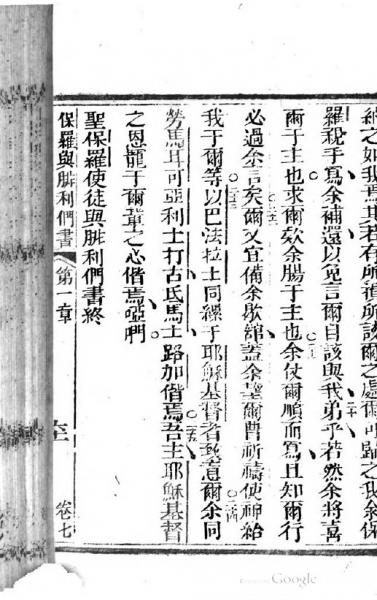 納之如我焉其若有所損所該爾之處爾可歸之我余保
羅親手寫余補還以免言爾自該與我弟乎若然余將喜
爾于主也求爾欵余腸于主也余仗爾順而寫且知爾行
必過余言矣爾又宜備余歇舘蓋余望爾曹祈禱使神給
我于爾等以巴法拉士同縲于耶穌基督者致意爾余同
勞馬耳可亞利士打古氐馬士路加偕焉吾主耶穌基督
之恩寵于爾輩之心偕焉亞們
聖保羅使徒與腓利們書終
保羅與腓利們書 第一章 卷七
Google